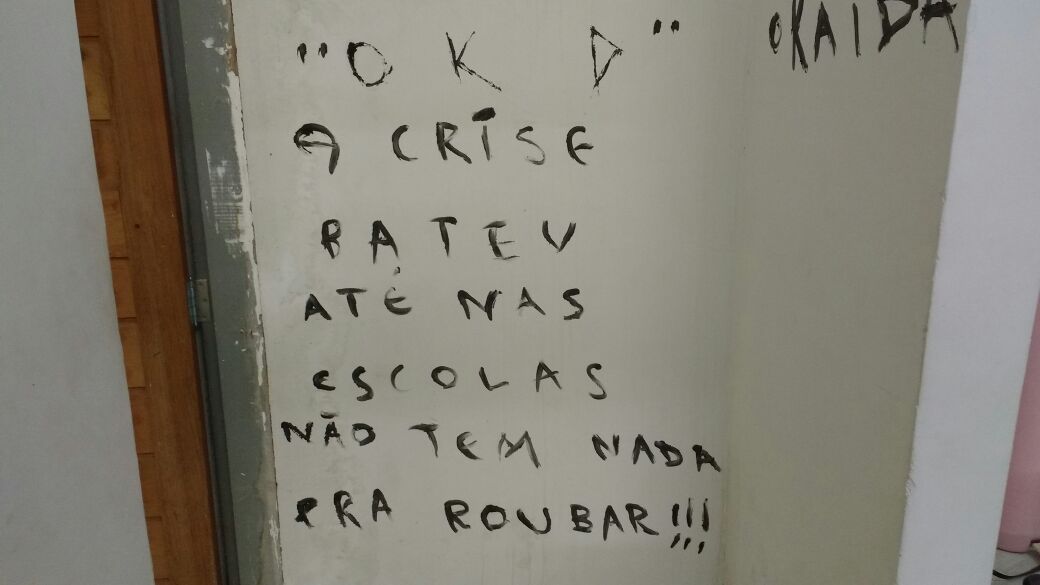 "OKD"
OKAIDA
A CRISE
BATEU
ATÉ NAS
ESCOLAS
NÃO TEM NADA
PRA ROUBAR!!!